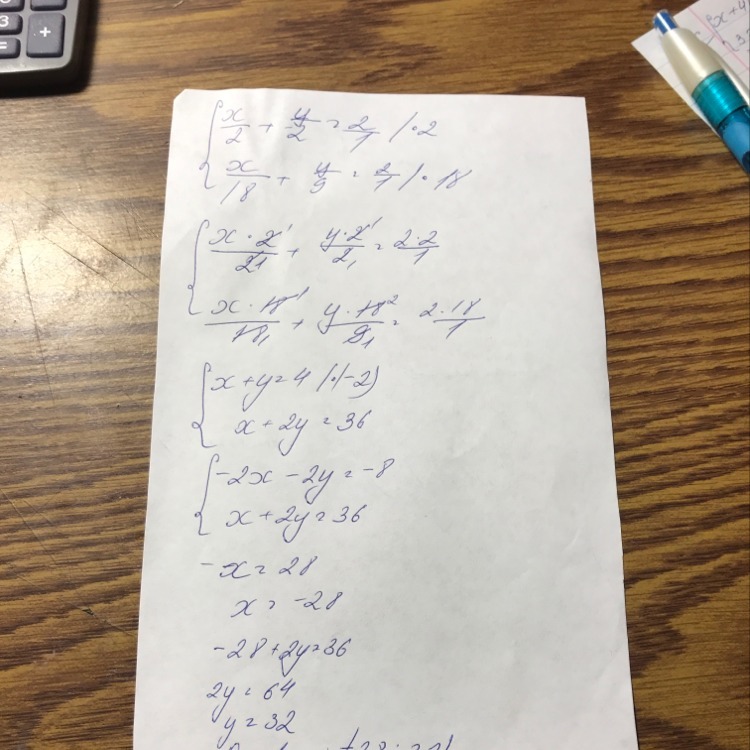 x/2 + y/2 = 2/1 |·2
x/18 + y/9 = 2/1 |·18
x·2/2 + y·2/2 = 2·2/1
x·18/18 + y·18/9 = 2·18/1
x+y=4 |·(-2)
x+2y=36
-2x-2y=-8
x+2y=36
-x=28
x=-28
-28+2y=36
2y=64
y=32